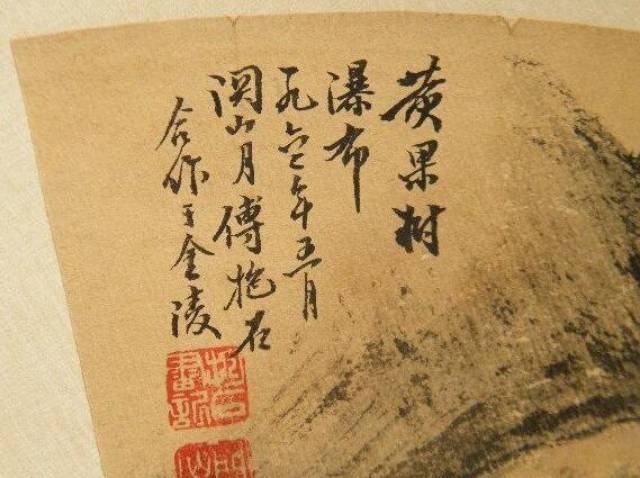 黄果树
瀑布
一九六三年五月
関山月傅抱石
合作于金陵